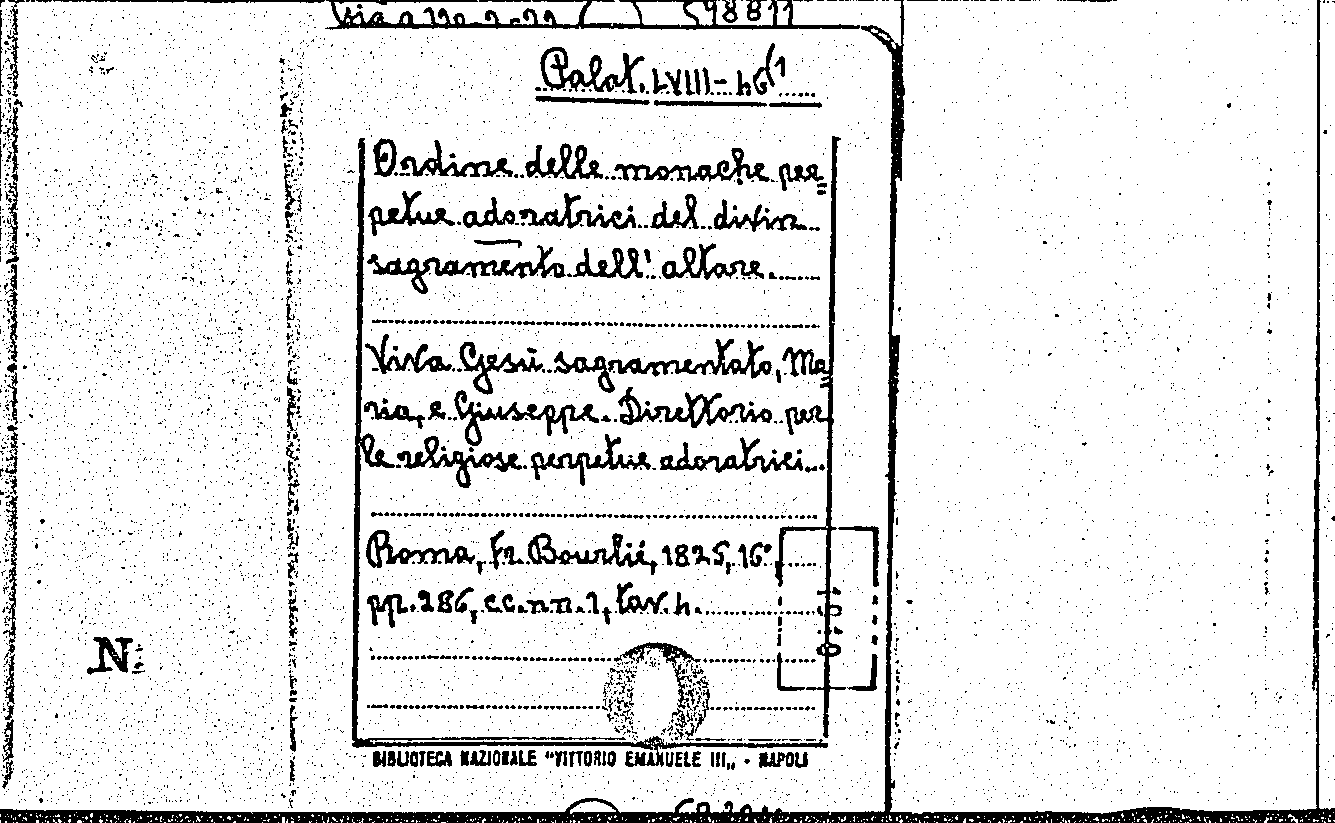 598811
Palat. LVIII-46(1
Ordine delle monache per=
petue adoratrici del divin
sagramento dell' altare.
Viva Gesù sagramentato, Ma=
ria, e Giuseppe. Direttorio per
le religiose perpetue adoratrici...
Roma, Fr. Bourlié, 1825, 16°,
pp. 286, cc. nn. 1, tav. 4.
N:
BIBLIOTECA NAZIONALE "VITTORIO EMANUELE III„ - NAPOLI